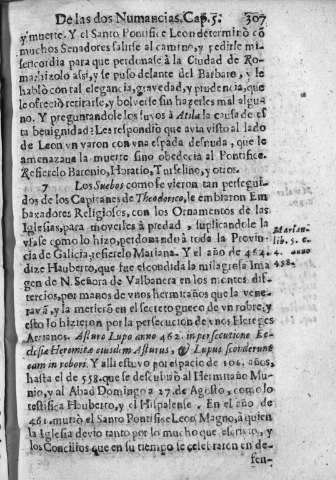 De las dos Numancias. Cap. 5. 307
y muerte. Y el Santo Pontifice Leon determinò cõ
muchos Senadores salirse al camino, y pedirle mi-
sericordia para que perdonase à la Ciudad de Ro-
ma: hizolo assi, y se puso delante del Barbaro, y le
hablò con tal elegancia, gravedad, y prudencia, que
le ofreciò retirarse, y bolverse sin hazerles mal algu-
no. Y preguntandole los suyos à Atila la causa de es
ta benignidad: Les respondiò que avia visto al lado
de Leon vn varon con vna espada desnuda, que le
amenazava la muerte sino obedecia al Pontifice.
Refierelo Baronio, Horatio, Turselino, y otros.
7 Los Suebos como se vieron tan persegui-
dos de los Capitanes de Theodorico, le embiaron Em
baxadores Religiosos, con los Ornamentos de las
Iglesias, para moverles à piedad, suplicandole la
vsase como lo hizo, perdonando à toda la Provin-
cia de Galicia, refierelo Mariana. Y el año de 462.
dize Hauberto, que fue escondida la milagrosa Ima
gen de N. Señora de Valbanera en los montes dis-
tercios, por manos de vnos hermitaños que la vene-
ravan, y la metieron en el secreto gueco de vn robre, y
esto lo hizieron por la persecucion de vnos Hereges
Arrianos. Asturo Lupo anno 462. in persecutione Ec-
clesiæ Heremitæ eiusdem Asturus, & Lupus sconderunt
eam in robori. Y alli estuvo por espacio de 106. años,
hasta el de 558. que se descubriò al Hermitaño Mu-
nio, y al Abad Domingo à 27. de Agosto, como lo
testifica Hauberto, y el Hispalense. En el año de
461. muriò el Santo Pontifice Leon Magno, à quien
la Iglesia deviò tanto por lo mucho que
los Concilios que en su tiempo se celebraron en de-
fen-
Marian.
lib. 5. c.
4. anno
458.